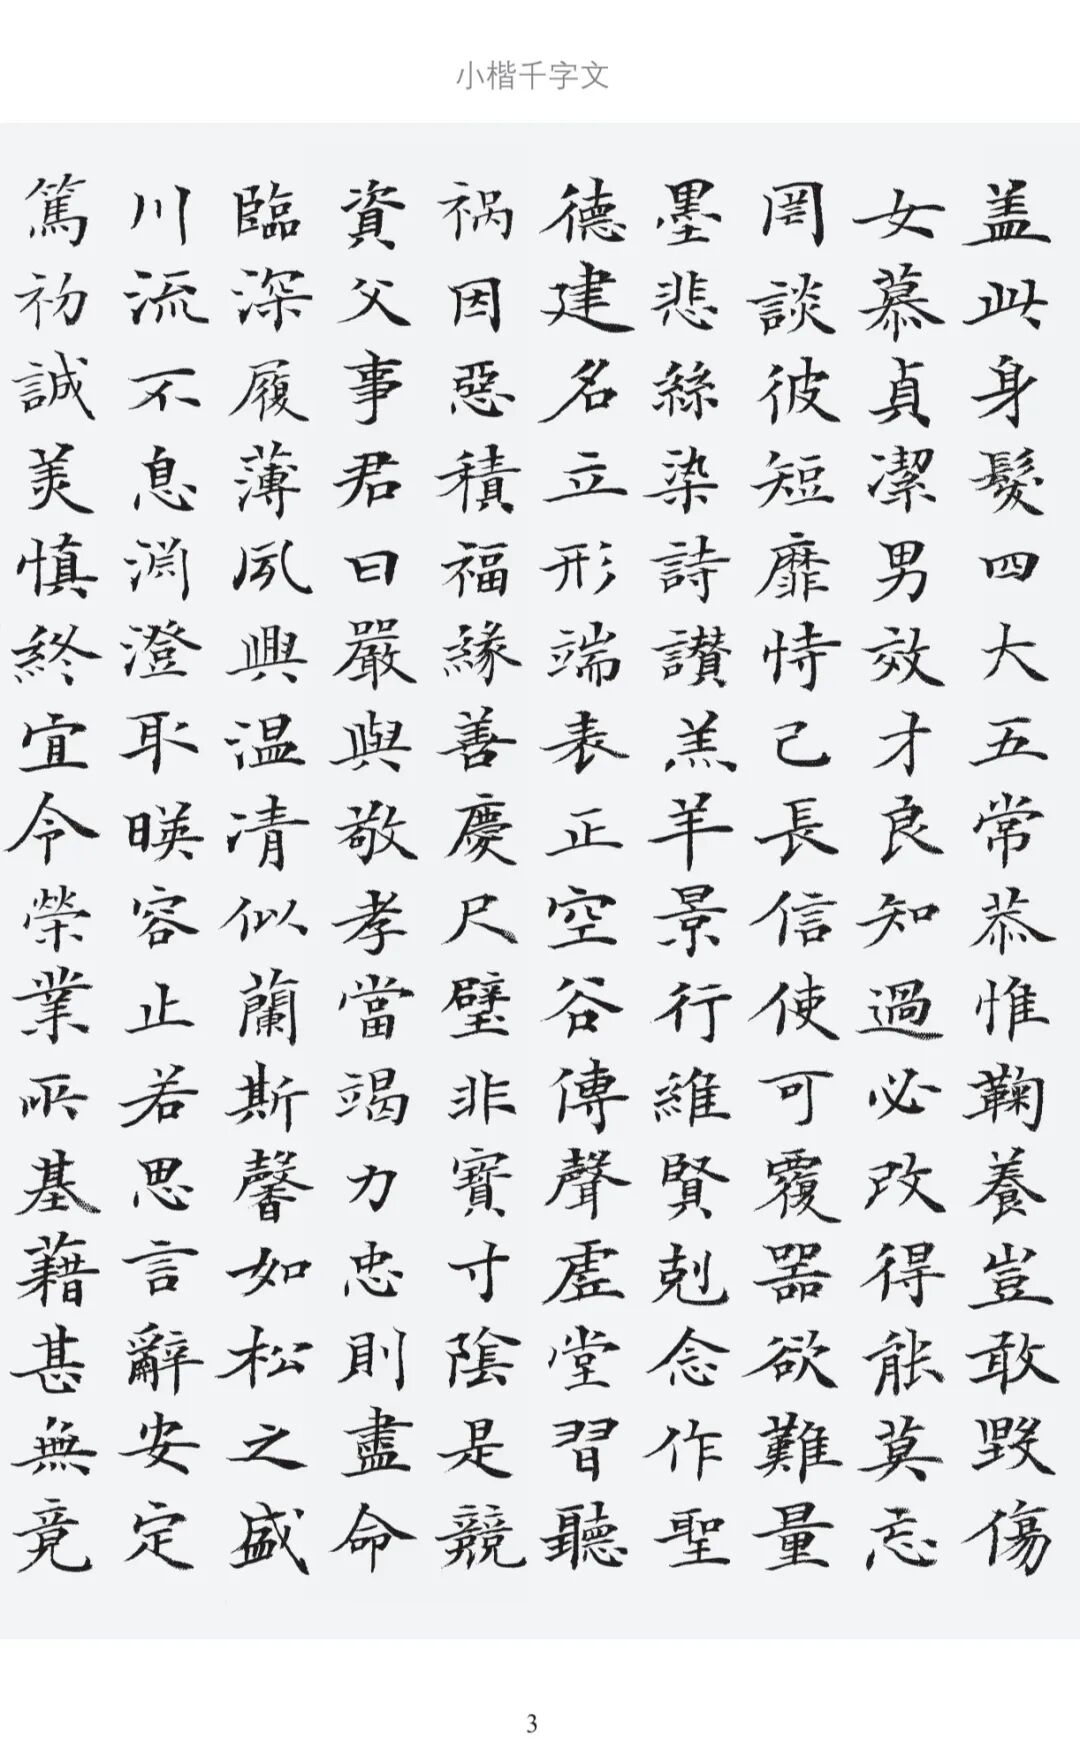 小楷千字文
盖此身髮四大五常恭惟鞠養豈敢毀傷
女慕貞潔男效才良知過必改得能莫忘
罔談彼短靡恃己長信使可覆器欲難量
墨悲絲染詩讃羔羊景行維賢剋念作聖
德建名立形端表正空谷傳聲虛堂習聽
祸因惡積福緣善慶尺璧非寶寸陰是競
資父事君曰嚴與敬孝當竭力忠則盡命
臨深履薄夙興温凊似蘭斯馨如松之盛
川流不息渊澄取暎容止若思言辭安定
篤初誠美慎終宜令榮業所基藉甚無竟
3